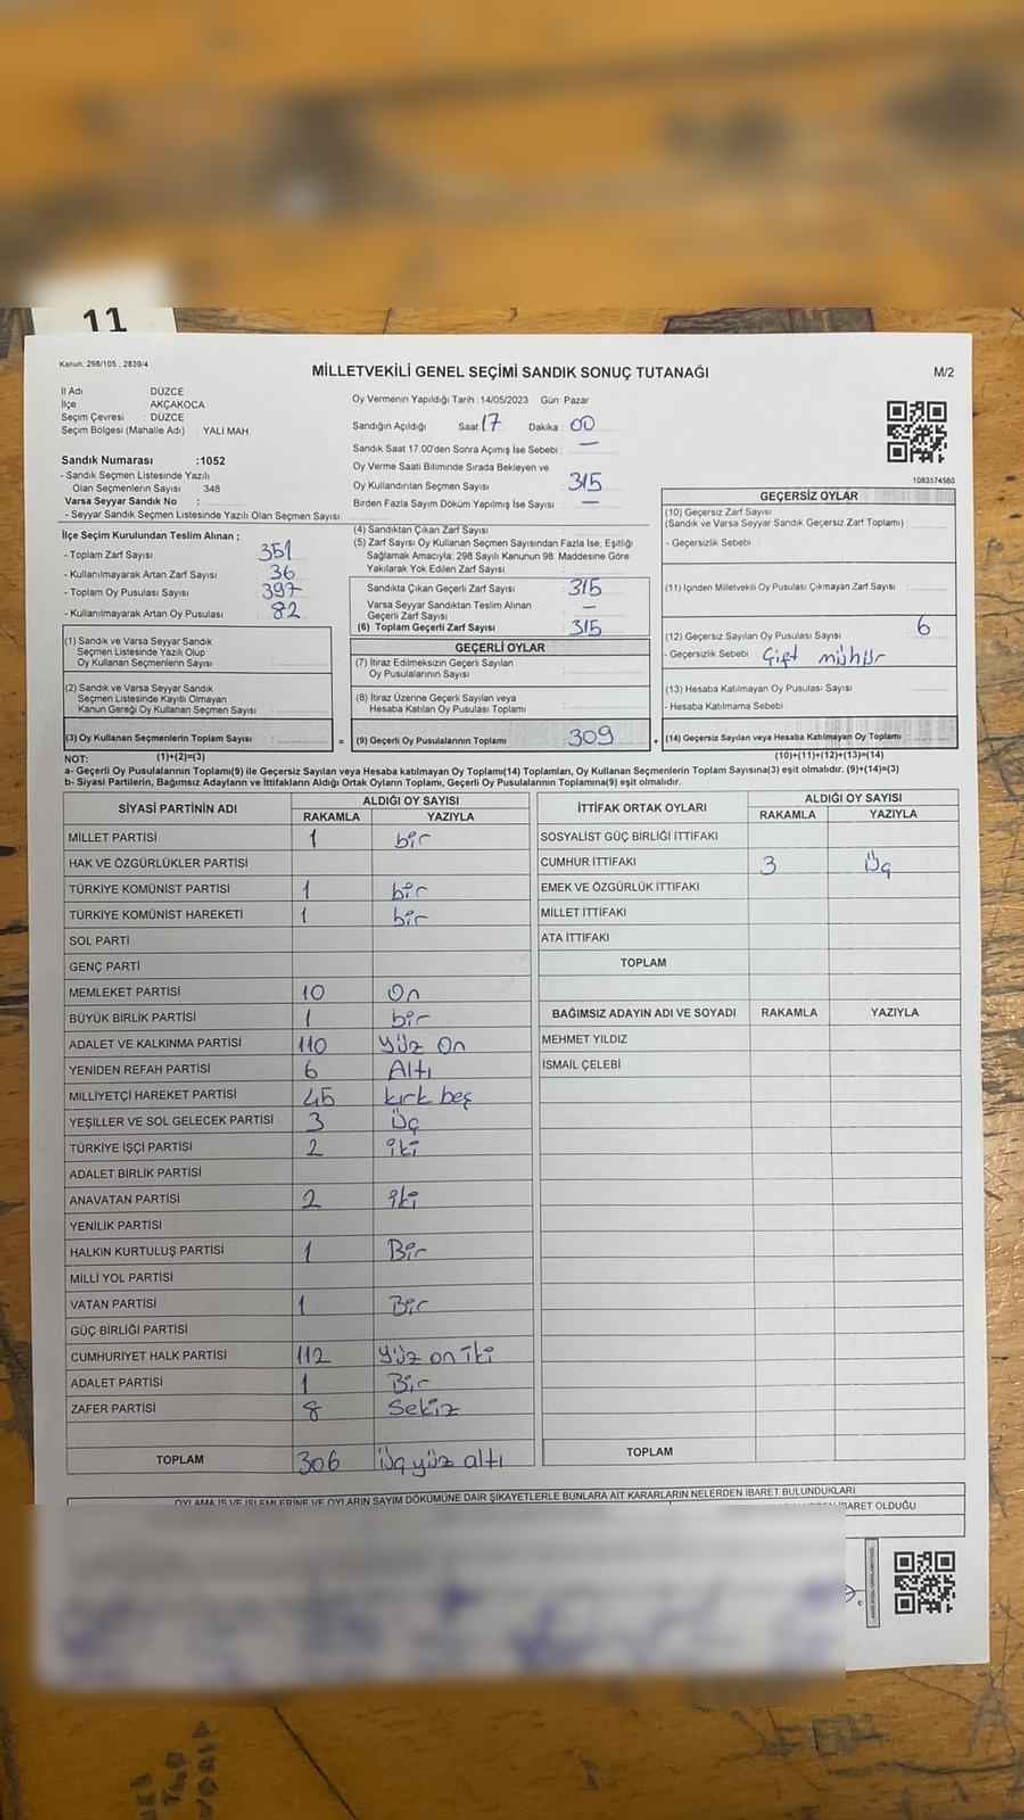 11
Kanun: 298/105 , 2839/4
MİLLETVEKİLİ GENEL SEÇİMİ SANDIK SONUÇ TUTANAĞI
M/2
İl Adı DÜZCE
İlçe AKÇAKOCA
Seçim Çevresi DÜZCE
Seçim Bölgesi (Mahalle Adı) YALI MAH.
Oy Vermenin Yapıldığı Tarih :14/05/2023 Gün: Pazar
Sandığın Açıldığı Saat 17 Dakika : 00
Sandık Saat 17.00'den Sonra Açımış İse Sebebi : —
Oy Verme Saati Bitiminde Sırada Bekleyen ve
Oy Kullandırılan Seçmen Sayısı 315
Birden Fazla Sayım Döküm Yapılmış İse Sayısı —
1083574560
Sandık Numarası :1052
- Sandık Seçmen Listesinde Yazılı
Olan Seçmenlerin Sayısı : 348
Varsa Seyyar Sandık No :
- Seyyar Sandık Seçmen Listesinde Yazılı Olan Seçmen Sayısı
İlçe Seçim Kurulundan Teslim Alınan ;
- Toplam Zarf Sayısı 351
- Kullanılmayarak Artan Zarf Sayısı 36
- Toplam Oy Pusulası Sayısı 397
- Kullanılmayarak Artan Oy Pusulası 82
(1) Sandık ve Varsa Seyyar Sandık
Seçmen Listesinde Yazılı Olup
Oy Kullanan Seçmenlerin Sayısı
(2) Sandık ve Varsa Seyyar Sandık
Seçmen Listesinde Kayıtlı Olmayan
Kanun Gereği Oy Kullanan Seçmen Sayısı
(3) Oy Kullanan Seçmenlerin Toplam Sayısı
(1)+(2)=(3)
(4) Sandıktan Çıkan Zarf Sayısı
(5) Zarf Sayısı Oy Kullanan Seçmen Sayısından Fazla İse; Eşitliği
Sağlamak Amacıyla; 298 Sayılı Kanunun 98. Maddesine Göre
Yakılarak Yok Edilen Zarf Sayısı
Sandıkta Çıkan Geçerli Zarf Sayısı 315
Varsa Seyyar Sandıktan Teslim Alınan
Geçerli Zarf Sayısı —
(6) Toplam Geçerli Zarf Sayısı 315
GEÇERLİ OYLAR
(7) İtiraz Edilmeksizin Geçerli Sayılan
Oy Pusulalarının Sayısı
(8) İtiraz Üzerine Geçerli Sayılan veya
Hesaba Katılan Oy Pusulası Toplamı
= (9) Geçerli Oy Pusulalarının Toplamı 309
GEÇERSİZ OYLAR
(10) Geçersiz Zarf Sayısı
(Sandık ve Varsa Seyyar Sandık Geçersiz Zarf Toplamı)
- Geçersizlik Sebebi
(11) İçinden Milletvekili Oy Pusulası Çıkmayan Zarf Sayısı
(12) Geçersiz Sayılan Oy Pusulası Sayısı 6
- Geçersizlik Sebebi Çift mühür
(13) Hesaba Katılmayan Oy Pusulası Sayısı
- Hesaba Katılmama Sebebi
+ (14) Geçersiz Sayılan veya Hesaba Katılmayan Oy Toplamı
(10)+(11)+(12)+(13)=(14)
NOT:
a- Geçerli Oy Pusulalarının Toplamı(9) ile Geçersiz Sayılan veya Hesaba katılmayan Oy Toplamı(14) Toplamları, Oy Kullanan Seçmenlerin Toplam Sayısına(3) eşit olmalıdır. (9)+(14)=(3)
b- Siyasi Partilerin, Bağımsız Adayların ve İttifakların Aldığı Ortak Oyların Toplamı, Geçerli Oy Pusulalarının Toplamına(9) eşit olmalıdır.
SİYASİ PARTİNİN ADI ALDIĞI OY SAYISI
RAKAMLA YAZIYLA
MİLLET PARTİSİ 1 bir
HAK VE ÖZGÜRLÜKLER PARTİSİ
TÜRKİYE KOMÜNİST PARTİSİ 1 bir
TÜRKİYE KOMÜNİST HAREKETİ 1 bir
SOL PARTİ
GENÇ PARTİ
MEMLEKET PARTİSİ 10 On
BÜYÜK BİRLİK PARTİSİ 1 bir
ADALET VE KALKINMA PARTİSİ 110 Yüz On
YENİDEN REFAH PARTİSİ 6 Altı
MİLLİYETÇİ HAREKET PARTİSİ 45 kırk beş
YEŞİLLER VE SOL GELECEK PARTİSİ 3 Üç
TÜRKİYE İŞÇİ PARTİSİ 2 iki
ADALET BİRLİK PARTİSİ
ANAVATAN PARTİSİ 2 iki
YENİLİK PARTİSİ
HALKIN KURTULUŞ PARTİSİ 1 Bir
MİLLİ YOL PARTİSİ
VATAN PARTİSİ 1 Bir
GÜÇ BİRLİĞİ PARTİSİ
CUMHURİYET HALK PARTİSİ 112 Yüz on iki
ADALET PARTİSİ 1 Bir
ZAFER PARTİSİ 8 Sekiz
TOPLAM 306 Üç yüz altı
İTTİFAK ORTAK OYLARI ALDIĞI OY SAYISI
RAKAMLA YAZIYLA
SOSYALİST GÜÇ BİRLİĞİ İTTİFAKI
CUMHUR İTTİFAKI 3 Üç
EMEK VE ÖZGÜRLÜK İTTİFAKI
MİLLET İTTİFAKI
ATA İTTİFAKI
TOPLAM
BAĞIMSIZ ADAYIN ADI VE SOYADI RAKAMLA YAZIYLA
MEHMET YILDIZ
İSMAİL ÇELEBİ
TOPLAM
OYLAMA İŞ VE İŞLEMLERİNE VE OYLARIN SAYIM DÖKÜMÜNE DAİR ŞİKAYETLERLE BUNLARA AİT KARARLARIN NELERDEN İBARET BULUNDUKLARI
İBARET OLDUĞU